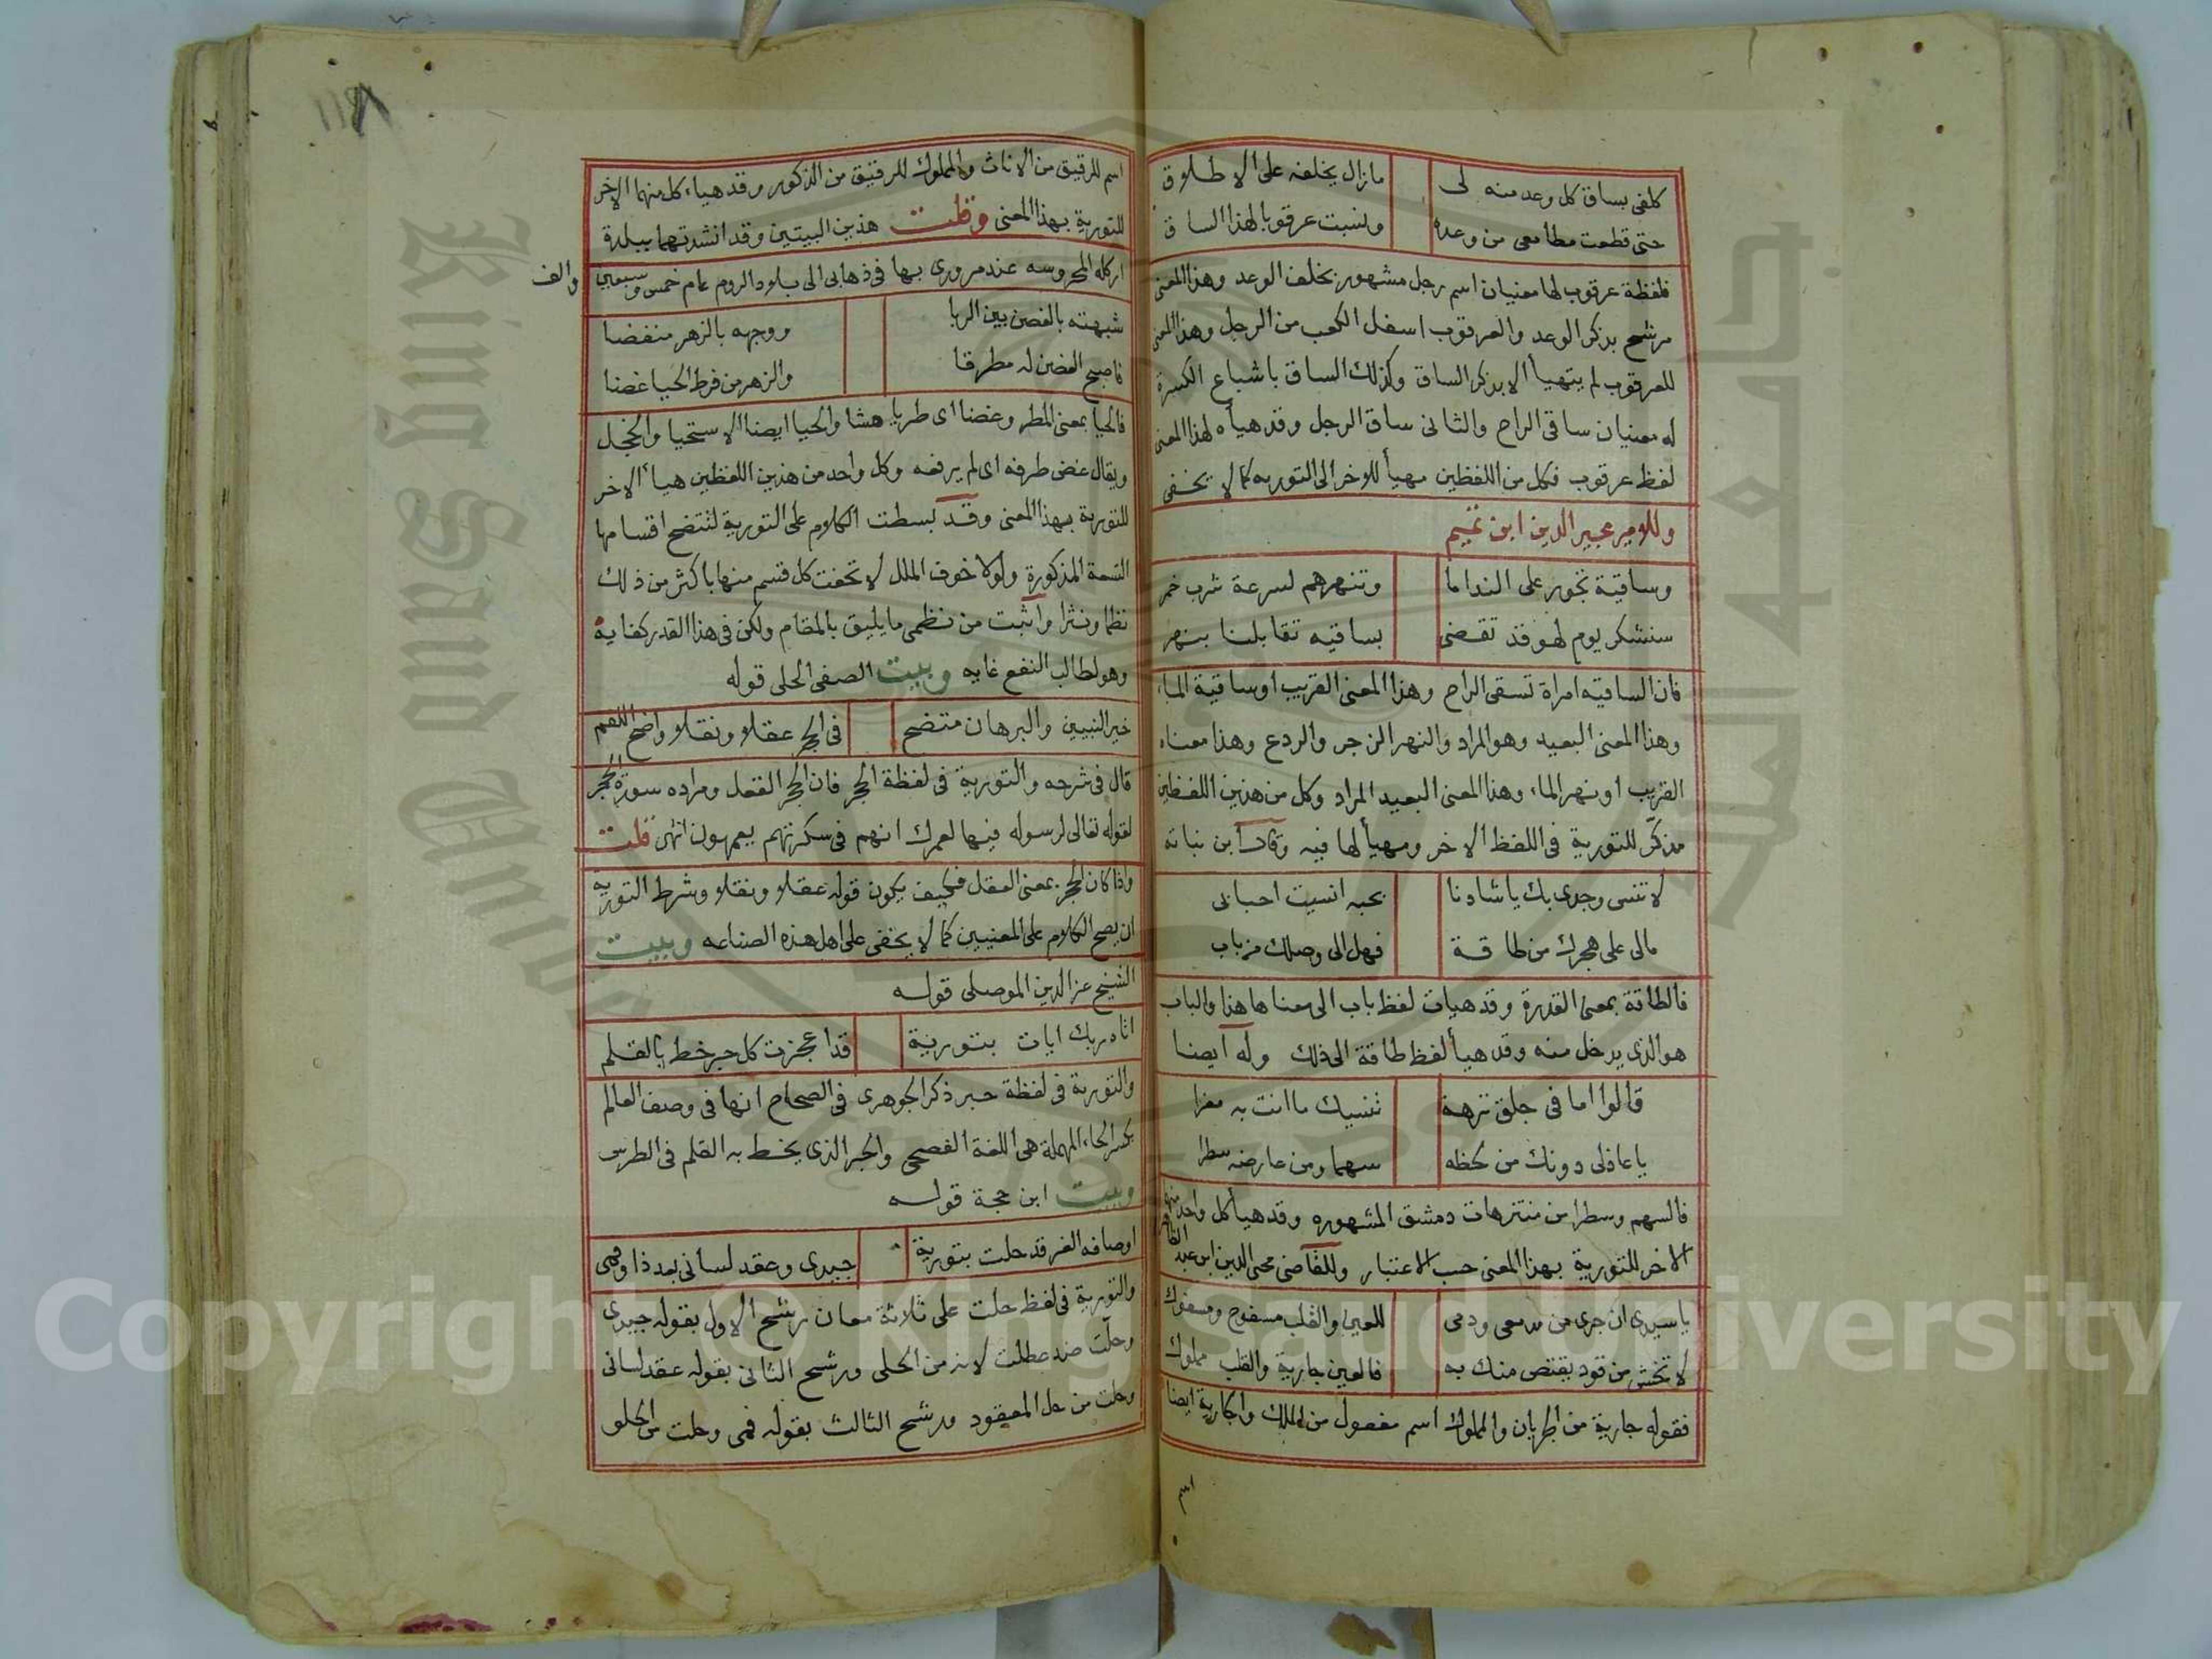 كلفى بساق كل وعد منه لى
مازال يخلفه على الاطلاق
حتى قطعت مطامعى من وعده
ونسبت عرقوبا لهذا الساق
فلفظة عرقوب لها معنيان اسم رجل مشهور بخلف الوعد وهذا المعنى
مرشح بذكر الوعد والعرقوب اسفل الكعب من الرجل وهذا المعنى
للعرقوب لم يتهيأ الا بذكر الساق وكذلك الساق باشباع الكسرة
له معنيان ساقى الراح والثانى ساق الرجل وقد هيأه لهذا المعنى
لفظ عرقوب فكل من اللفظين مهيأ للاخر الى التوريه كما لا يخفى
وللامير مجير الدين ابن تميم
وساقية تجور على النداما
وتنهرهم لسرعة شرب خمر
سنشكر يوم لهو قد تقضى
بساقيه تقابلنا بنهر
فان الساقيه امراة تسقى الراح وهذا المعنى القريب او ساقية الماء
وهذا المعنى البعيد وهو المراد والنهر الزجر والردع وهذا معناه
القريب او نهر الماء وهذا المعنى البعيد المراد وكل من هذين اللفظين
مذكر للتورية فى اللفظ الاخر ومهيأ لها فيه وقال ابن نباته
لا تنسى وجدى بك يا شادنا
بحبه انسيت احبابى
مالى على هجرك من طاقة
فهل الى وصلك من باب
فالطاقة بمعنى القدرة وقد هيات لفظ باب الى معناها هذا والباب
هو الذى يدخل منه وقد هيأ لفظ طاقة الى ذلك وله ايضا
قالوا اما فى جلق نزهة
تنسيك ما انت به مغرا
يا عاذلى دونك من لحظه
سهما ومن عارضه سطرا
فالسهم وسطرا من منتزهات دمشق المشهوره وقد هيأ كل واحد منها
الاخر للتورية بهذا المعنى حسب الاعتبار وللقاضى محى الدين ابن عبد الظاهر
يا سيدى ان جرى من مدمعى ودمى
للعين والقلب مسفوح ومسفوك
لا تخش من قود يقتص منك به
فالعين جارية والقلب مملوك
فقوله جارية من الجريان والمملوك اسم مفعول من الملك والجارية ايضا
اسم للرقيق من الاناث والمملوك للرقيق من الذكور وقد هياء كل منهما الاخر
للتورية بهذا المعنى وقلت هذين البيتين وقد انشدتهما ببلدة
اركله المحروسه عند مرورى بها فى ذهابى الى بلاد الروم عام خمس وسبعين
والف
شبهته بالغصن بين الربا
ووجهه بالزهر منفضا
فاصبح الغصن له مطرقا
والزهر من فرط الحيا غضا
فالحيا بمعنى المطر وغضا اى طريا هشا والحيا ايضا الاستحيا والخجل
ويقال غض طرفه اى لم يرفعه وكل واحد من هذين اللفظين هيأ الاخر
للتورية بهذا المعنى وقد بسطت الكلام على التورية لتتضح اقسامها
التسعة المذكورة ولولا خوف الملل لاتحفت كل قسم منها باكثر من ذلك
نظما ونثرا واثبت من نظمى ما يليق بالمقام ولكن فى هذا القدر كفايه
وهو لطالب النفع غايه وبيت الصفى الحلى قوله
خير النبيين والبرهان متضح
فى الحجر عقلا ونقلا واضح اللقم
قال فى شرحه والتورية فى لفظة الحجر فان الحجر العقل ومراده سورة الحجر
لقوله تعالى لرسوله فيها لعمرك انهم فى سكرتهم يعمهون انتهى قلت
واذا كان الحجر بمعنى العقل فكيف يكون قوله عقلا ونقلا وشرط التوريه
ان يصح الكلام على المعنيين كما لا يخفى على اهل هذه الصناعه وبيت
الشيخ عز الدين الموصلى قوله
اتاه ربك ايات بتورية
قد اعجزت كل حبر خط بالقلم
والتورية فى لفظة حبر ذكر الجوهرى فى الصحاح انها فى وصف العالم
بكسر الحاء المهملة هى اللغة الفصحى والحبر الذى يخط به القلم فى الطرس
وبيت ابن حجة قوله
اوصافه الغر قد حلت بتورية
جيدى وعقد لسانى بعد ذا وفمى
والتورية فى لفظ حلت على ثلاثة معان رشح الاول بقوله جيدى
وحلت ضد عطلت لانه من الحلى ورشح الثانى بقوله عقد لسانى
وحلت من حل المعقود ورشح الثالث بقوله فمى وحلت من الحلو
King Saud University
Copyright © King Saud University